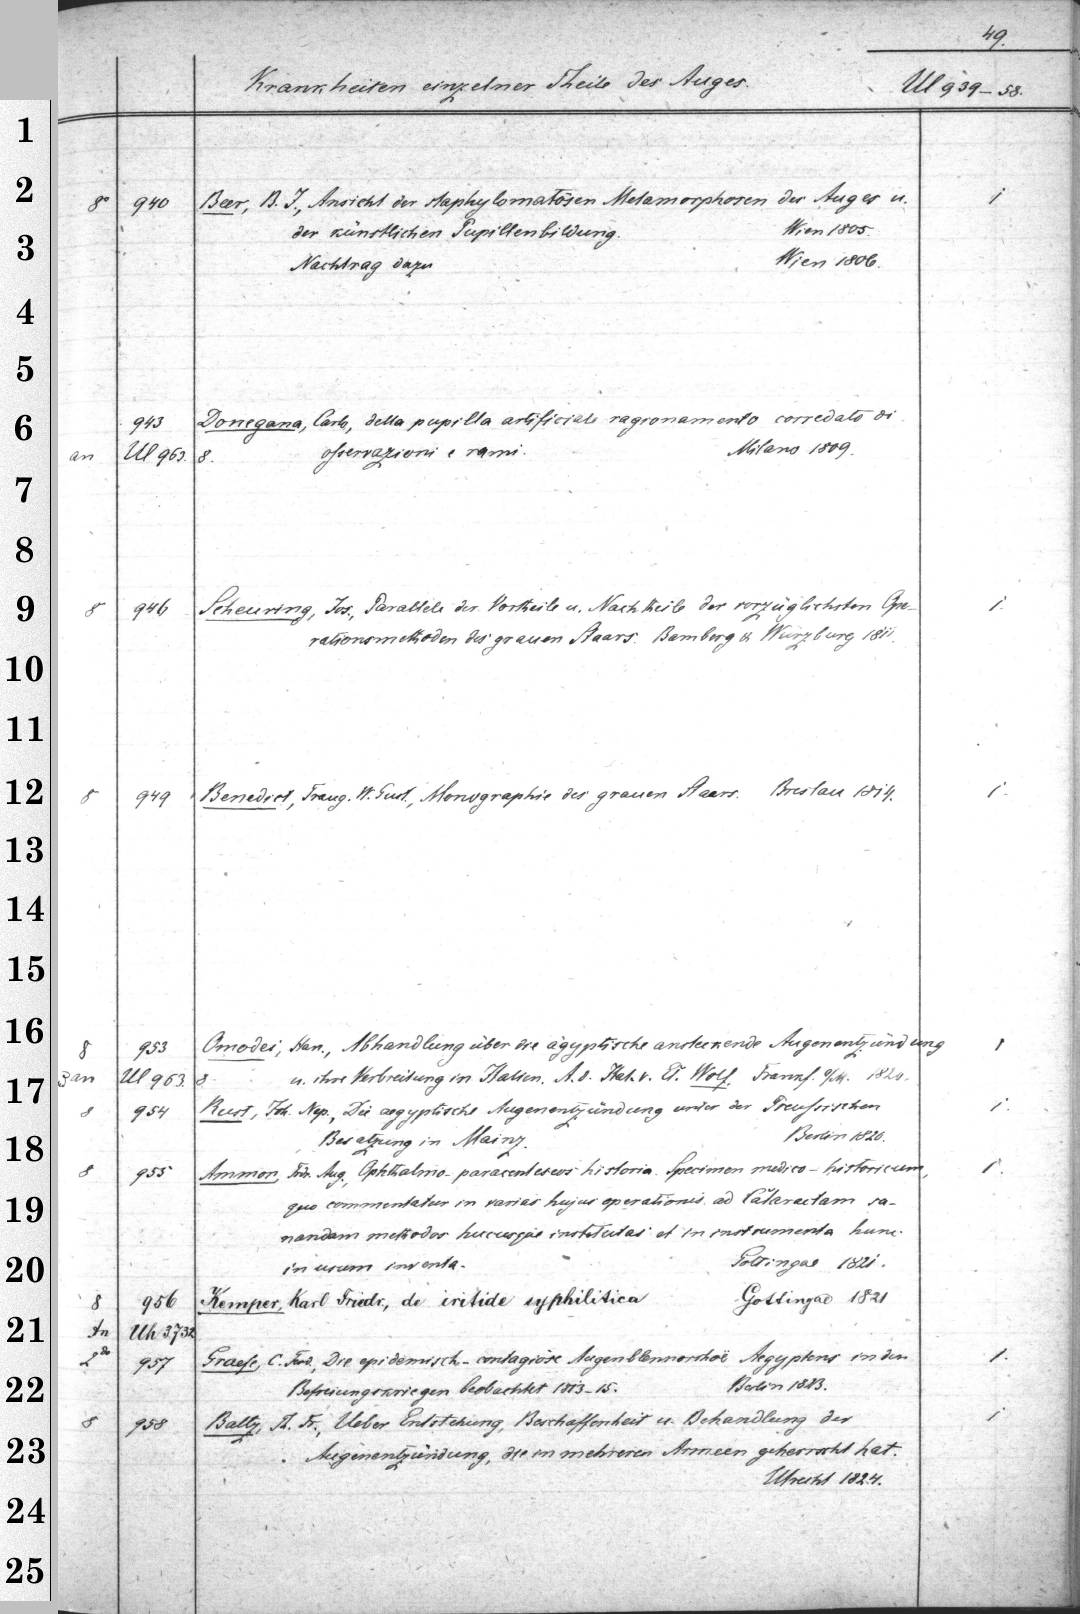 49.
Krankheiten einzelner Theile des Auges. Ul 939-58.
1
2
8° 940 Beer, B. J., Ansicht der staphylomatösen Metamorphosen des Auges u. 1
der künstlichen Pupillenbildung. Wien 1805.
3
Nachtrag dazu Wien 1806.
4
5
6
943 Donegana, Carlo, della pupilla artificiale ragionamento corredato di
an Ul 963. 8. osservazioni e rami. Milano 1809.
7
8
9
8 946 Scheuring, Jos., Parallele der Vortheile u. Nachtheile der vorzüglichsten Ope-
1.
rationsmethoden des grauen Staars. Bamberg & Würzburg 1811.
10
11
12
8 949 Benedict, Traug. W. Gust., Monographie des grauen Staars. Breslau 1814. 1.
13
14
15
16
8 953 Omodei, Han., Abhandlung über die ägyptische ansteckende Augenentzündung 1
17
3 an Ul 963 8. u. ihre Verbreitung in Italien. A. d. Ital. v. Wolf. Frankf. a/M. 1820.
8 954 Rust, Joh. Nep., Die aegyptische Augenentzündung unter der Preussischen 1.
18
Besatzung in Mainz. Berlin 1820.
8 955 Ammon, Frdr. Aug., Ophthalmo-paracenteseos historia. Specimen medico-historicum, 1.
19
quo commentatur in varias hujus operationis ad Cataractam sa-
nandam methodos hucusque institutas et in instrumenta hunc
20
in usum inventa. Gottingae 1821.
8 956 Kemper, Karl Friedr., de iritide syphilitica Gottingae 1821
21
An Uh 3732
2° 957 Graefe, C. Ferd., Die epidemisch-contagiöse Augenblennorrhoë Aegyptens in den 1.
22
Befreiungskriegen beobachtet 1813-15. Berlin 1823.
8 958 Baltz, Th. Fr., Ueber Entstehung, Beschaffenheit u. Behandlung der 1
23
Augenentzündung, die in mehreren Armeen geherrscht hat.
Utrecht 1824.
24
25